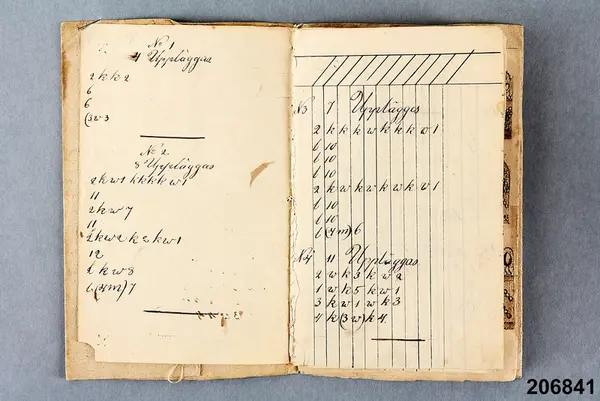 No 1
4 Uppläggas
2 k k 2
6
6
(3 w 3
No 2
8 Uppläggas
2 k w 1 k k k k w 1
11
2 k w 7
11
2 k w 2 k 2 k w 1
12
2 k w 8
6 (4 m) 7
No 3 7 Uppläggas
2 k k k w k k k w 1
6 10
6 10
6 10
2 k w k w k w k w 1
6 10
6 10
6 (4 m) 6
No 4 11 Uppläggas
2 w k 3 k w 2
1 w k 5 k w 1
3 k w 1 w k 3
4 k (3 w) k 4
206841